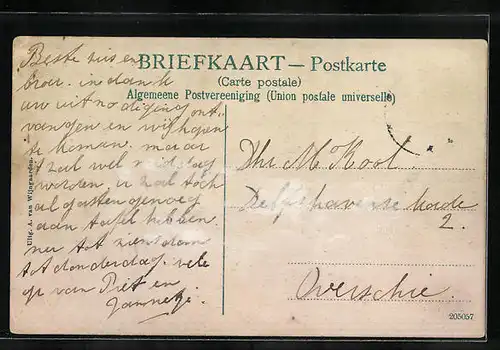 BRIEFKAART — Postkarte
(Carte postale)
Algemeene Postvereeniging (Union postale universelle)
Beste zus en
broer. in dank
uw uitnodiging ont-
vangen en wij hopen
te komen. maar
't zal wel vrijdag
worden, u zal toch
al gasten genoeg
aan tafel hebben.
nu tot ziens dan
tot donderdag. vele
gr van Piet en
Jannetje.
Uitg. A. van Wijngaarden.
Dhr M Kool.
Delfshavensekade
2.
Overschie.
205057